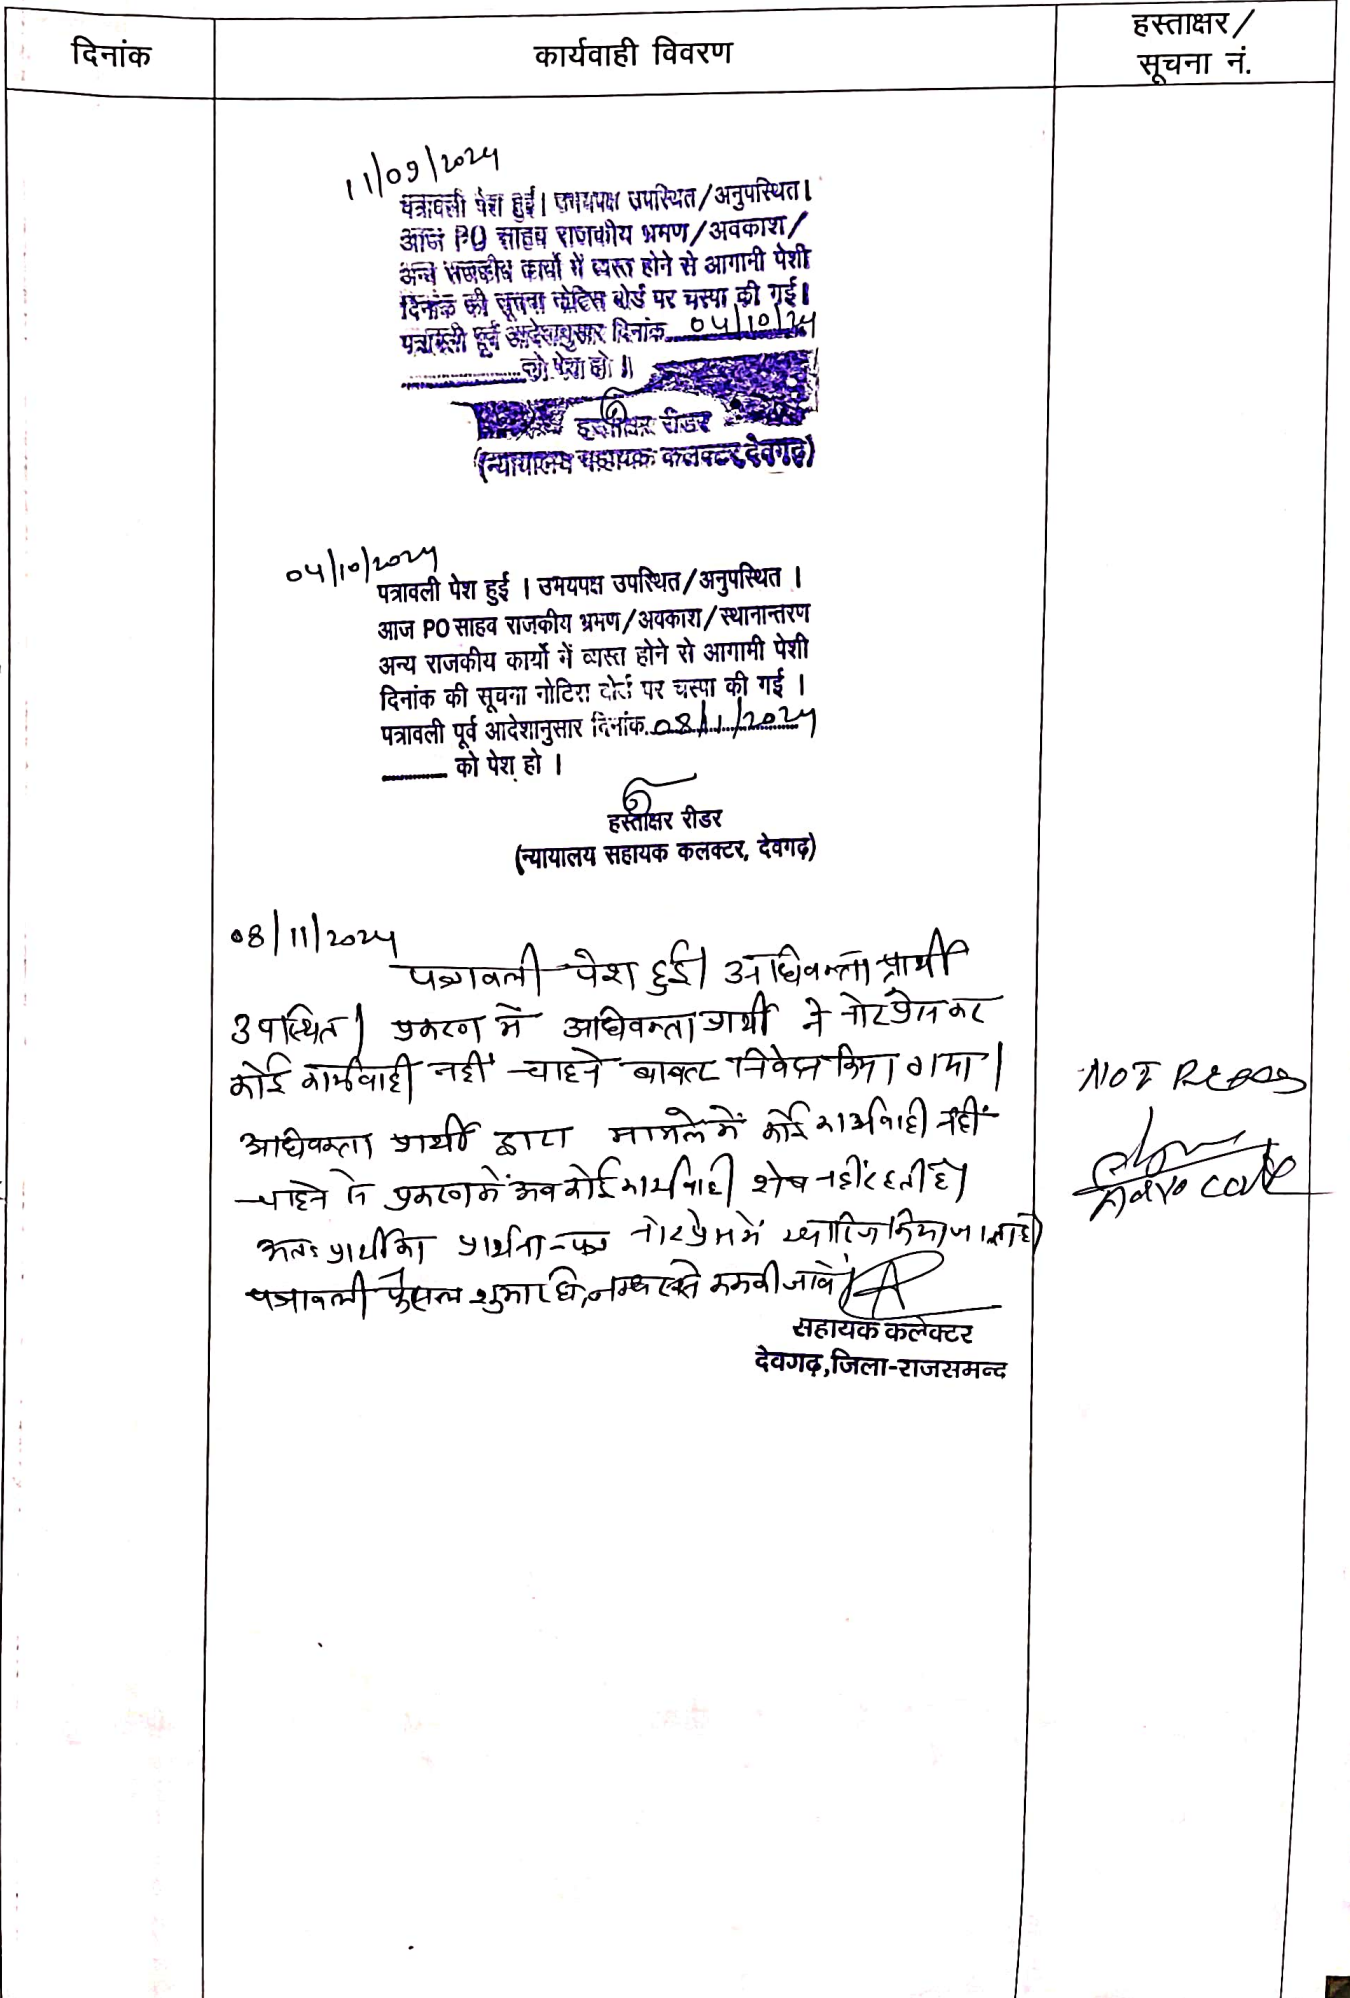 दिनांक
कार्यवाही विवरण
हस्ताक्षर/
सूचना नं.
11/09/2024
पत्रावली पेश हुई। उभयपक्ष उपस्थित/अनुपस्थित।
आज PO साहब राजकीय भ्रमण/अवकाश/
अन्य राजकीय कार्यो में व्यस्त होने से आगामी पेशी
दिनांक की सूचना नोटिस बोर्ड पर चस्पा की गई।
पत्रावली पूर्व आदेशानुसार दिनांक 04/10/24
को पेश हो॥
हस्ताक्षर रीडर
(न्यायालय सहायक कलक्टर, देवगढ़)
04/10/2024
पत्रावली पेश हुई । उभयपक्ष उपस्थित/अनुपस्थित ।
आज PO साहब राजकीय भ्रमण/अवकाश/स्थानान्तरण
अन्य राजकीय कार्यो में व्यस्त होने से आगामी पेशी
दिनांक की सूचना नोटिस बोर्ड पर चस्पा की गई ।
पत्रावली पूर्व आदेशानुसार दिनांक 08/11/2024
को पेश हो ।
हस्ताक्षर रीडर
(न्यायालय सहायक कलक्टर, देवगढ़)
08/11/2024
पत्रावली पेश हुई। अधिवक्ता प्रार्थी
उपस्थित। प्रकरण में अधिवक्ता प्रार्थी ने नोटप्रेस कर
कोई कार्यवाही नहीं चाहने बाबत निवेदन किया गया।
अधिवक्ता प्रार्थी द्वारा मामले में कोई कार्यवाही नहीं
चाहने से प्रकरण में अब कोई कार्यवाही शेष नहीं रहती है।
अतः प्रार्थी का प्रार्थना-पत्र नोटप्रेस में खारिज किया जाता है।
पत्रावली फैसल शुमार हो, नम्बर से कमकी जावे।
सहायक कलेक्टर
देवगढ़, जिला-राजसमन्द
NOT PRESS
Advocate